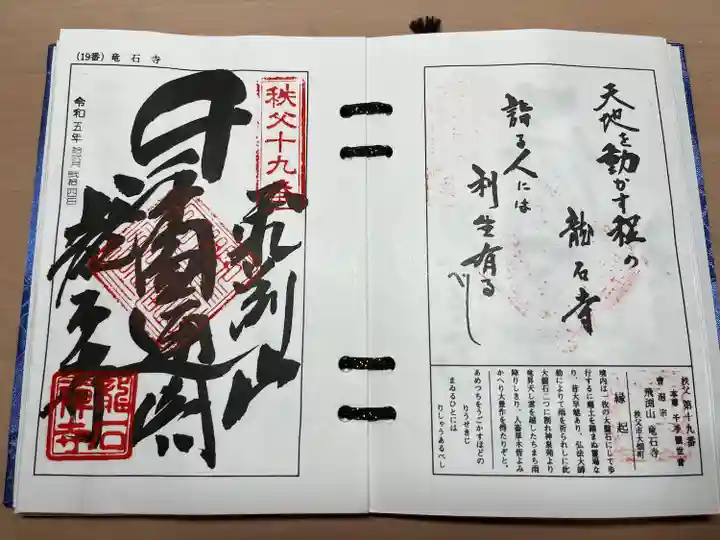 (19番) 竜石寺
令和五年 拾弐月 弐拾四日
秩父十九番
飛渕山
圓通閣
龍石寺
龍石禅寺
天地を動かす程の
龍石寺
詣る人には
利生有るべし
秩父第十九番
本尊 千手観世音
曹洞宗
飛渕山 竜石寺
秩父市大畑町
縁起
境内は一枚の大盤石にして歩
行するに砿土を踏まぬ霊場な
り、昔大旱魃あり、弘法大師
勅によりて雨を祈られしに此
大盤石二つに割れ神泉苑より
竜昇天し雲を起したちまち雨
降りしきり、人畜草木皆よみ
かへり大豊作を得たりぞと。
あめつちをうごかすほどの
りうせきじ
まゐるひとには
りしゃうあるべし